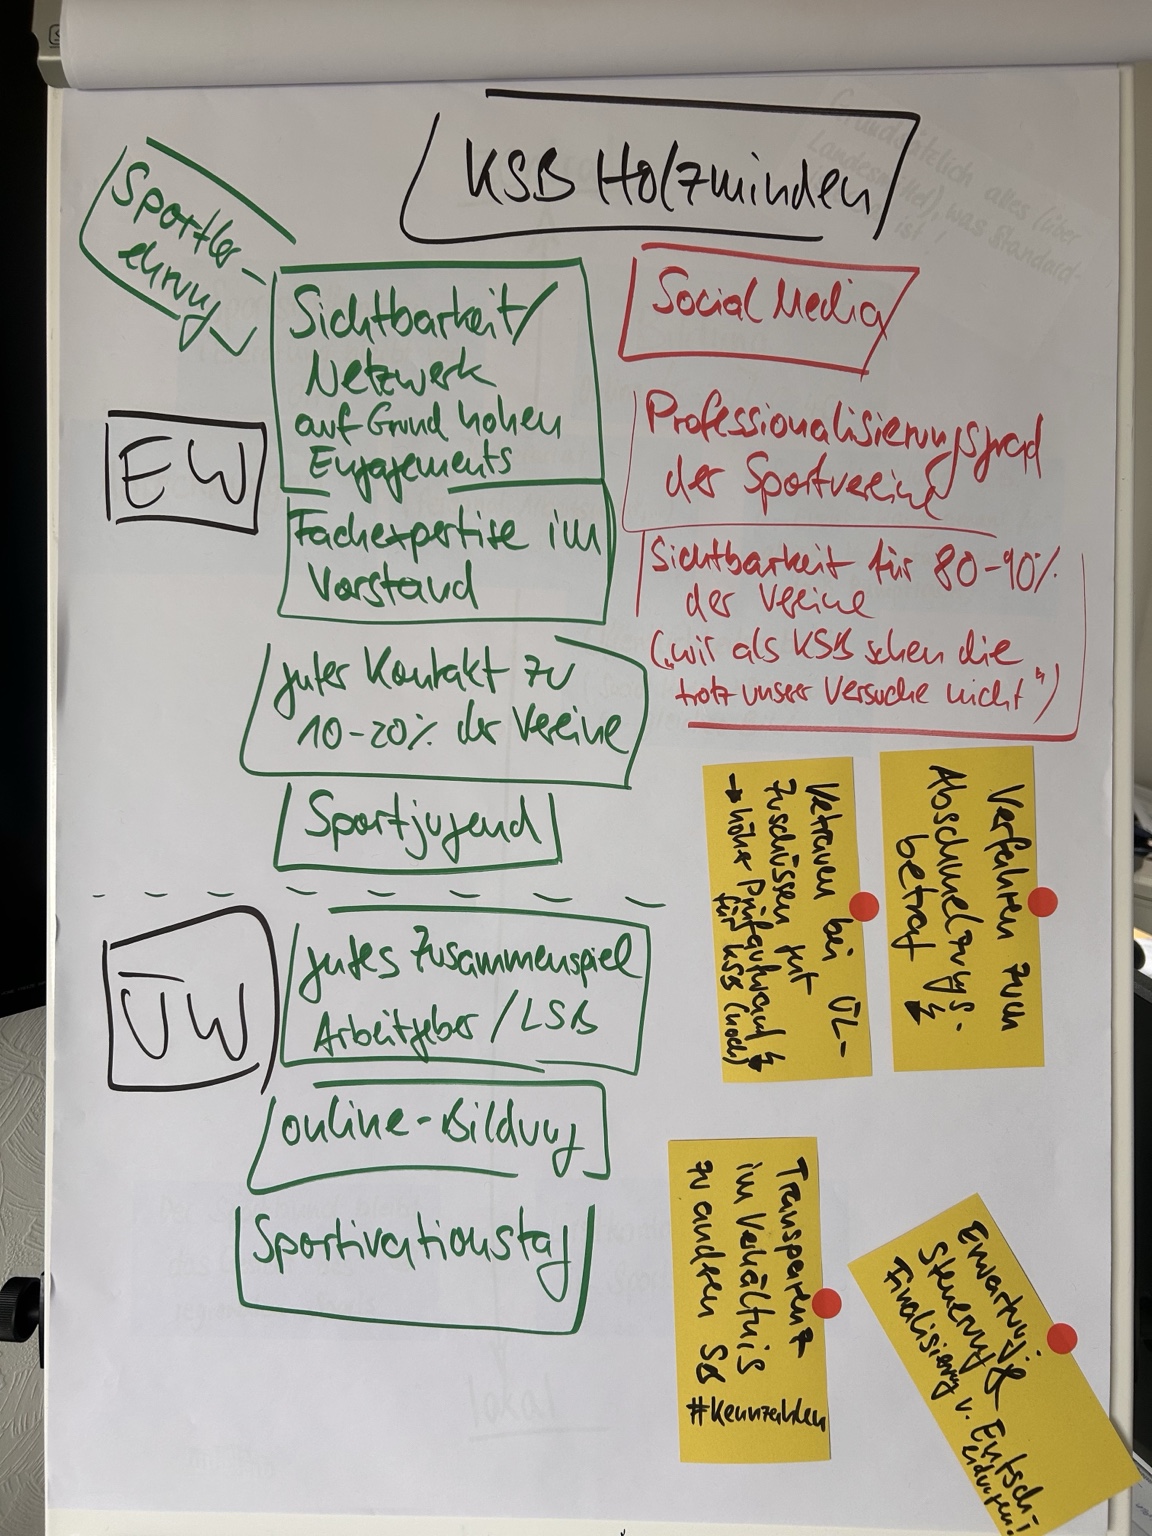 KSB Holzminden
Sportler-
ehrung
Sichtbarkeit/
Netzwerk
auf Grund hohen
Engagements
EW
Fachexpertise im
Vorstand
guter Kontakt zu
10-20% der Vereine
Sportjugend
ÜW
gutes Zusammenspiel
Arbeitgeber/LSB
online-Bildung
Sportivationstag
Social Media
Professionalisierungsgrad
der Sportvereine
Sichtbarkeit für 80-90%
der Vereine
("wir als KSB sehen die
trotz unser Versuche nicht")
Verfahren zum
Abschmelzungs-
betrag
Vetrauen bei ÜL-
Zuschüssen gut
→ hoher Prüfaufwand
für KSB (noch)
Transparenz
im Verhältnis
zu anderen SB
#Kennzahlen
Erwartung:
Steuerung &
Finalisierung v. Entsch-
eidungen!
Grundsätzlich alles (über
Landesmittel), was Standard-
ist!
lokal